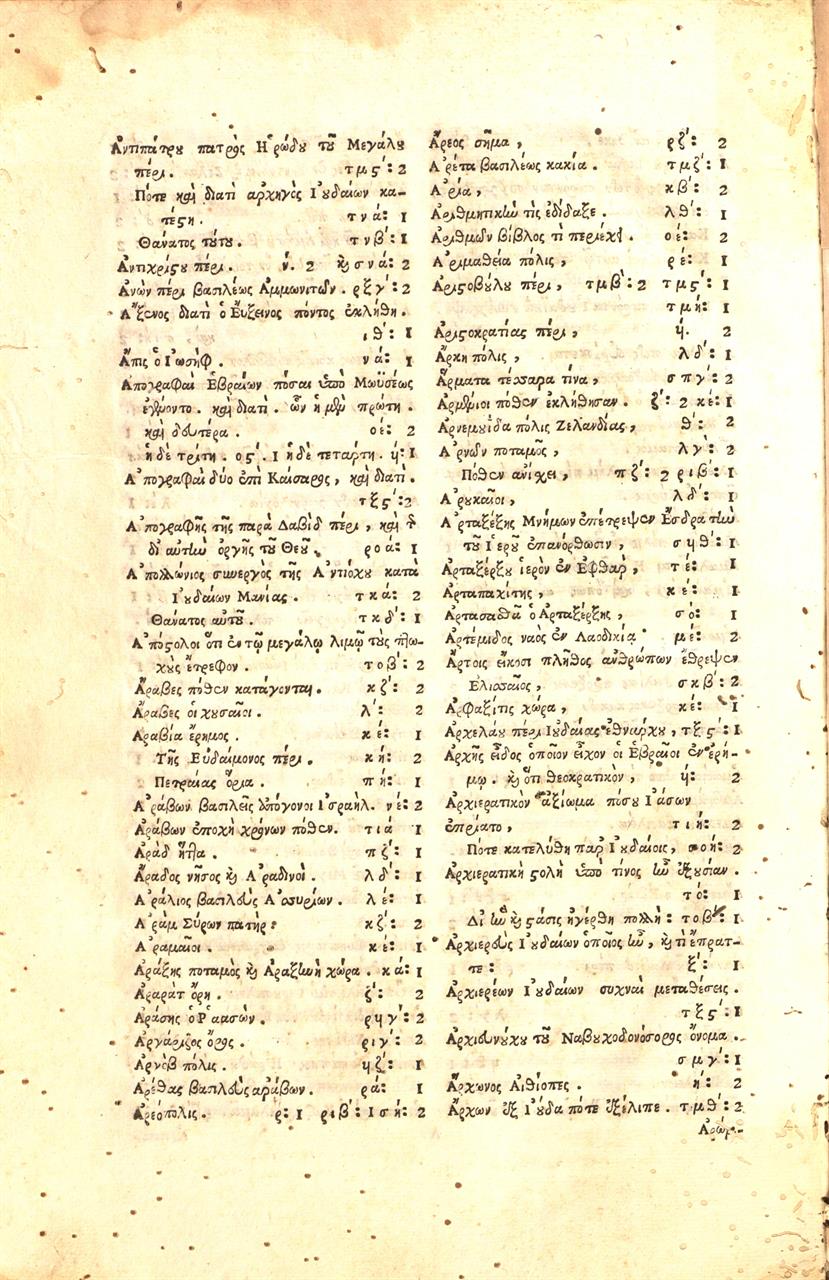 Ἀντιπάτρου πατρὸς Ἡρώδου τοῦ Μεγάλου
πέρι. τμϛ´: 2
Πότε καὶ διατὶ ἀρχηγὸς Ἰουδαίων κα-
τέϛη. τνά: 1
Θάνατος τούτου. τνβ´: 1
Ἀντιχρίϛου πέρι. ν´. 2 κ σνά: 2
Ἀνὼν πέρι βασιλέως Ἀμμωνιτῶν. ρξγ´: 2
Ἄξενος διατὶ ὁ Εὔξεινος πόντος ἐκλήθη.
ιθ´: 1
Ἄπις ὁ Ἰωσήφ. νά: 1
Ἀπογραφαὶ Ἑβραίων πόσαι ὑπὸ Μωϋσέως
ἐγένοντο. καὶ διατὶ. ὧν ἡ μὲν πρώτη.
καὶ δευτέρα. οέ: 2
ἡ δὲ τρίτη. οϛ´. 1 ἡ δὲ τετάρτη. ή: 1
Ἀπογραφαὶ δύο ἐπὶ Καίσαρος, καὶ διατὶ.
τξϛ´: 2
Ἀπογραφῆς τῆς παρὰ Δαβὶδ πέρι, καὶ τ
δι αὐτὴν ὀργῆς τοῦ Θεοῦ. ροά: 1
Ἀπολλώνιος συνεργὸς τῆς Ἀντιόχου κατὰ
Ἰουδαίων Μανίας. τκά: 2
Θάνατος αὐτοῦ. τκδ´: 1
Ἀπόϛολοι ὅτι ἐν τῷ μεγάλῳ λιμῷ τοὺς πτω-
χοὺς ἔτρεφον. τοβ´: 2
Ἄραβες πόθεν κατάγονται. κζ´: 2
Ἄραβες οἱ χουσαῖοι. λ´: 2
Ἀραβία ἔρημος. κέ: 1
Τῆς Εὐδαίμονος πέρι. κή: 2
Πετραίας ὅρια. πή: 1
Ἀράβων βασιλεῖς ἀπόγονοι Ἰσραήλ. νέ: 2
Ἀράβων ἐποχὴ χρόνων πόθεν. τιά 1
Ἀρὰδ ἧττα. πζ´: 1
Ἄραδος νῆσος κ Ἀραδινοί. λδ´: 1
Ἀράλιος βασιλεὺς Ἀσσυρίων. λέ: 1
Ἀρὰμ Σύρων πατήρ: κζ´: 2
Ἀραμαῖοι. κέ: 1
Ἀράξης ποταμὸς κ Ἀραξινὴ χώρα. κά: 1
Ἀραρὰτ ὄρη. ζ´: 2
Ἀράσης ὁ Ῥαασών. ρϟγ´: 2
Ἀργάριζος ὄρος. ριγ´: 2
Ἀργὸβ πόλις. ϟζ´: 1
Ἀρέθας βασιλεὺς ἀράβων. ρά: 1
Ἀρεόπολις. ρ: 1 ριβ´: 1 σή: 2
Ἄρεος σῆμα, ρζ´: 2
Ἀρέτα βασιλέως κακία. τμζ´: 1
Ἀρία, κβ´: 2
Ἀριθμητικὴν τίς ἐδίδαξε. λθ´: 1
Ἀριθμῶν βίβλος τὶ περιέχει. οέ: 2
Ἀριμαθεία πόλις, ρέ: 1
Ἀριϛοβούλου πέρι, τμβ´: 2 τμϛ´: 1
τμή: 1
Ἀριϛοκρατίας πέρι, ή. 2
Ἄρκη πόλις, λδ´: 1
Ἅρματα τέσσαρα τίνα, σπγ´: 2
Ἀρμένιοι πόθεν ἐκλήθησαν. ζ´: 2 κέ: 1
Ἀρνεμουΐδα πόλις Ζελανδίας, θ´: 2
Ἀρνὼν ποταμὸς, λγ´: 2
Πόθεν ἀνίχει, πζ´: 2 ριβ´: 1
Ἀρουκαῖοι, λδ´: 1
Ἀρταξέξης Μνήμων ἐπέτρεψεν Ἔσδρα τὴν
τοῦ Ἱεροῦ ἐπανόρθωσιν, σϟθ´: 1
Ἀρταξέρξου ἱερὸν ἐν Ἐφθαρ, τέ: 1
Ἀρταπαχίτης, κέ: 1
Ἀρτασαθᾶ ὁ Ἀρταξέρξης, σό: 1
Ἀρτέμιδος ναὸς ἐν Λαοδικίᾳ μέ: 2
Ἄρτοις εἴκοσι πλῆθος ἀνθρώπων ἔθρεψεν
Ἐλισσαῖος, σκβ´: 2
Ἀρφαξίτις χώρα, κέ: 1
Ἀρχελάου πέρι Ἰουδαίας ἐθνάρχου, τξϛ´: 1
Ἀρχῆς εἶδος ὁποῖον εἶχον οἱ Ἑβραῖοι ἐν ἐρή-
μῳ. κ ὅτι θεοκρατικὸν, ή: 2
Ἀρχιερατικὸν ἀξίωμα πόσου Ἰάσων
ἐπρίατο, τιή: 2
Πότε κατελύθη παρ Ἰουδαίοις, σοή: 2
Ἀρχιερατικὴ ϛολὴ ὑπὸ τίνος ἦν ἐξουσίαν.
τό: 1
Δι ἣν κ ϛάσις ἠγέρθη πολλή: τοβ´: 1
Ἀρχιερεὺς Ἰουδαίων ὁποῖος ἦν, κ τὶ ἔπρατ-
τε: ξ´: 1
Ἀρχιερέων Ἰουδαίων συχναὶ μεταθέσεις.
τξϛ´: 1
Ἀρχιευνούχου τοῦ Ναβουχοδονόσορος ὄνομα.
σμγ´: 1
Ἄρχωνος Αἰθίοπες. ή: 2
Ἄρχων ἐξ Ἰούδα πότε ἐξέλιπε. τμθ´: 2
Ἀρώμ-